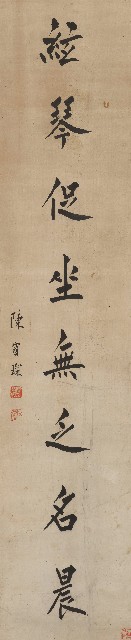 絃琴促坐無乏名晨
陳寶琛